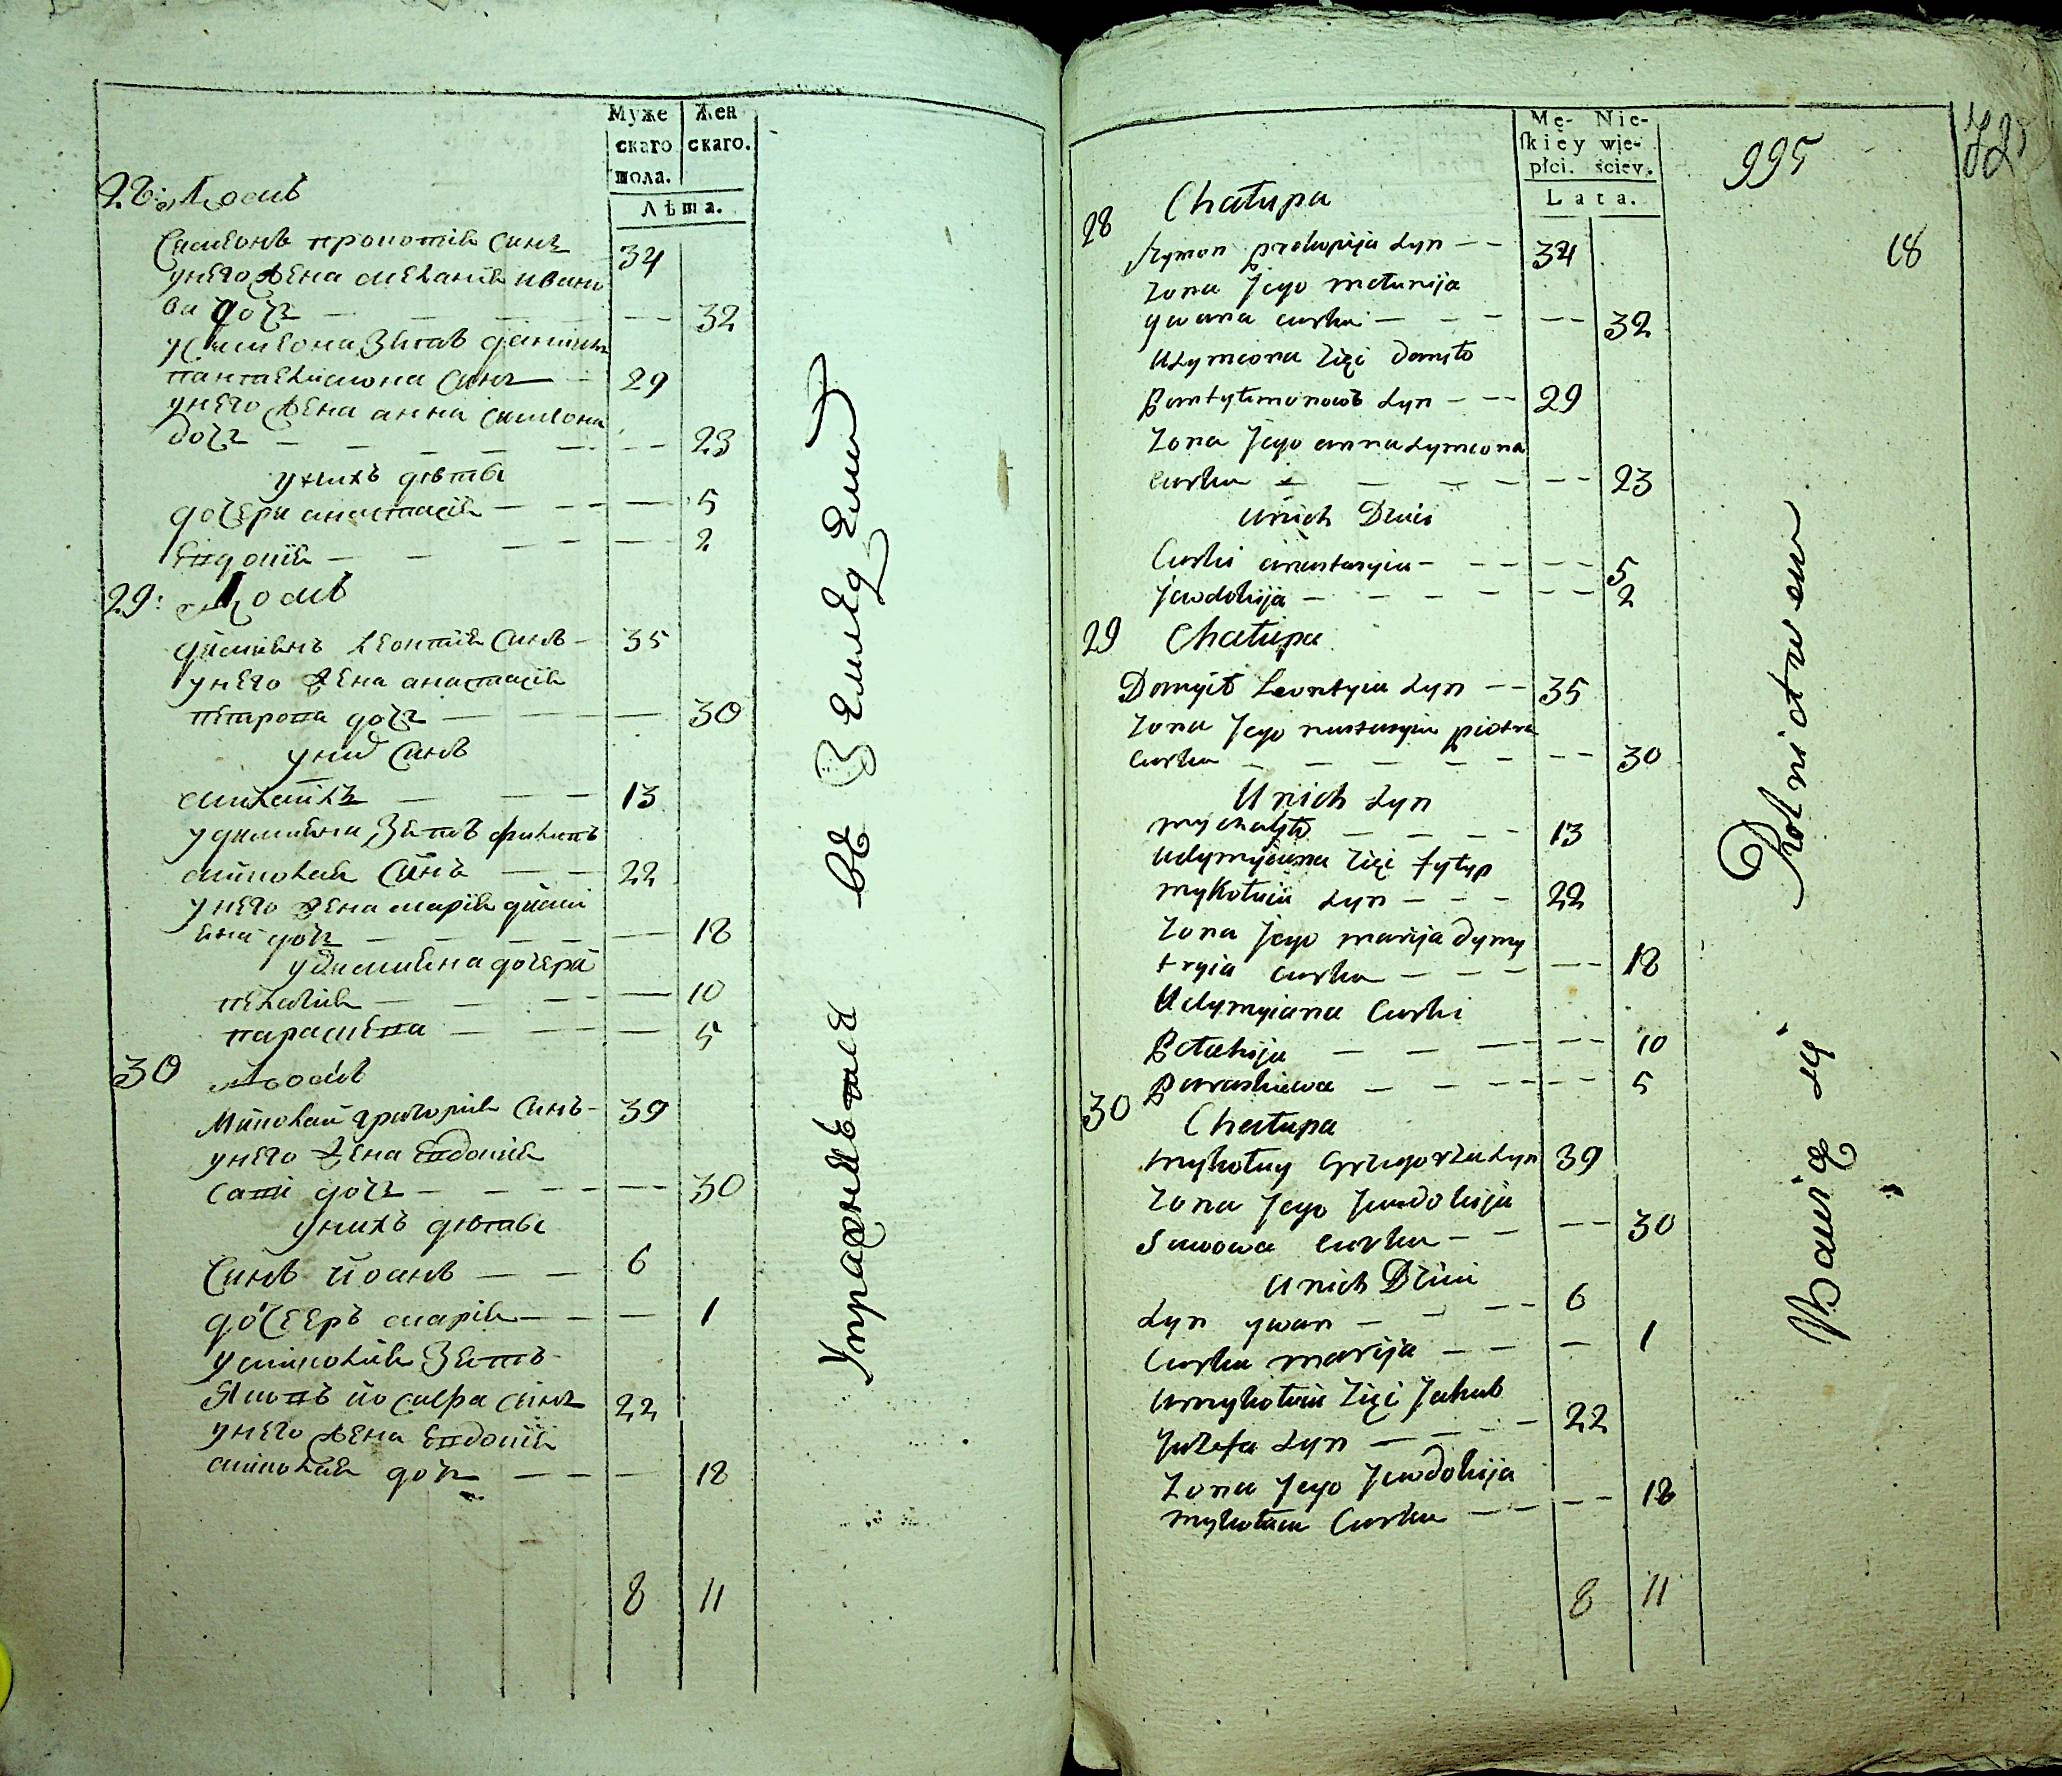 Муже Жен
скаго скаго.
пола.
Лѣта.
28: Домъ
Симеонъ прокопіѧ синъ 34
унего жена меланіѧ ивано
ва дочъ — — — 32
усимеона зѧть данило
пантелимона синъ — 29
унего жена анна симеона
дочъ — — — 23
унихъ дѣти
дочери анастасіѧ — — 5
Евдокіѧ — — 2
29: Домъ
димиѧнъ леонтіѧ синъ — 35
унего жена анастасіѧ
петрова дочъ — — 30
уних синъ
михаилъ — — 13
удимиѧна зѧть филипъ
миколаѧ синъ — — 22
унего жена маріѧ дими
ѧна дочъ — — 18
удимиѧна дочери
пелагіѧ — — 10
параскева — — 5
30 Домъ
Миколай григоріѧ синъ — 39
унего жена Евдокіѧ
сави дочъ — — 30
унихъ дѣти
синъ иоанъ — — 6
дочеръ маріѧ — — 1
умиколаѧ зѧть
Яковъ иосифа синъ 22
унего жена Евдокіѧ
миколаѧ дочъ — — 18
8 11
Упражнѧетсѧ въ Земледелии
Mę- Nie-
skiey wie-
płci. ściey.
Lata.
995
72
18
28 Chałupa
Szymon prokopija syn — — 34
żona Jego mełanija
ywana curka — — — 32
uszymona zięć daniło
Pantylimonowb syn — — 29
żona Jego anna szymona
curka — — — 23
unich Dzieci
Curki anastasyia — — 5
Jewdokija — — 2
29 Chałupa
Demyjan Leontyia syn — — 35
żona Jego nastasyia piotra
curka — — — 30
Unich syn
mychajło — — 13
udymyjana zięć fyłyp
mykołaia syn — — 22
żona Jego marija dymy
tryia curka — — 18
Udymyiana Curki
Pełahija — — 10
Paraskiewa — — 5
30 Chałupa
mykołay Grzegorza syn 39
żona Jego Jewdokija
Sawowa curka — — 30
unich Dzieci
syn ywan — — 6
Curka marija — — 1
umykołaia zięć Jakub
Juzefa syn — — 22
żona Jego Jewdokija
mykołaia Curka — — 18
8 11
Bawią się Rolnictwem